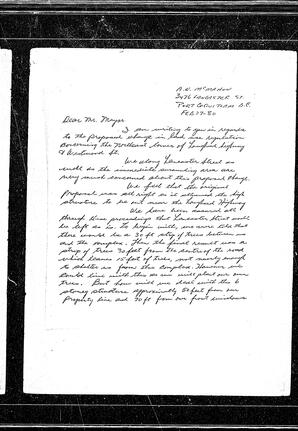 A.N. McMahon
3476 Lancaster St.
Port Coquitlam B.C.
Feb 27-80
Dear Mr. Mayor
I am writing to you in regards
to the proposed change in land use regulation
concerning the Northeast corner of Lougheed highway
& Westwood St.
We along Lancaster Street as
well as the immediate surrounding area are
very much concerned about this proposed change.
We feel that the original
Proposal was all right as it adjoined the high
structure to be out near the Lougheed Highway
We have been assured all
through these proceedings that Lancaster Street would
be left as is. To begin with, we were told that
there would be a 30 ft strip of trees between us
and the complex. Then the final result was a
strip of trees 30 feet from the centre of the road
which leaves 15 feet of trees, not nearly enough
to shelter us from this complex. However we
could live with this as we will plant our own
trees. But how will we deal with this 6
storey structure approximately 50 feet from our
Property line and 70 feet from our front windows